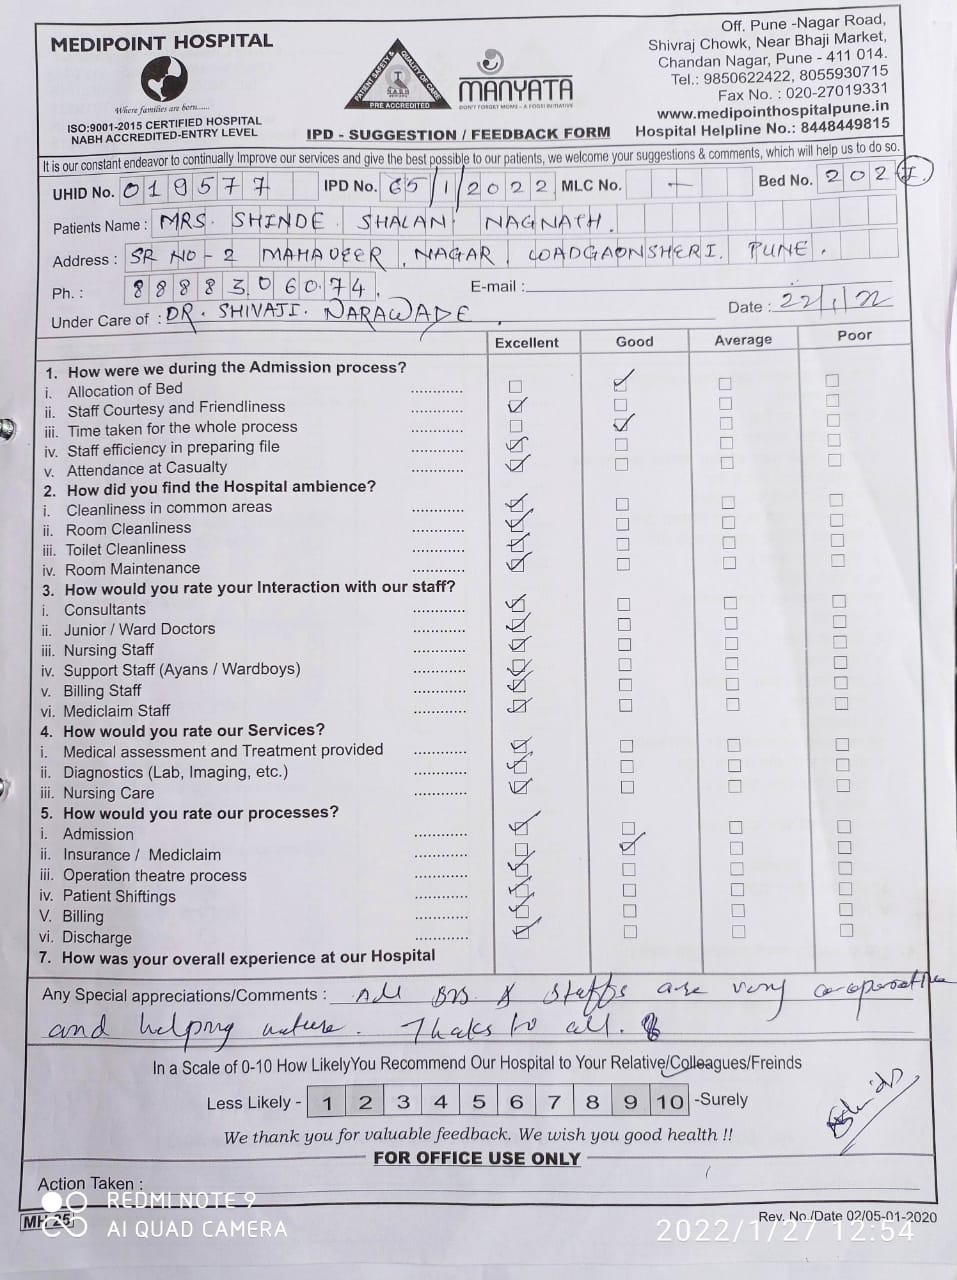 MEDIPOINT HOSPITAL
Where families are born......
ISO:9001-2015 CERTIFIED HOSPITAL
NABH ACCREDITED-ENTRY LEVEL
PATIENT SAFETY & QUALITY OF CARE
PRE ACCREDITED
MANYATA
DON'T FORGET MOMS - A FOGSI INITIATIVE
Off. Pune -Nagar Road,
Shivraj Chowk, Near Bhaji Market,
Chandan Nagar, Pune - 411 014.
Tel.: 9850622422, 8055930715
Fax No. : 020-27019331
www.medipointhospitalpune.in
Hospital Helpline No.: 8448449815
IPD - SUGGESTION / FEEDBACK FORM
It is our constant endeavor to continually Improve our services and give the best possible to our patients, we welcome your suggestions & comments, which will help us to do so.
UHID No. 019577 IPD No. 65/1/2022 MLC No. - Bed No. 202 I
Patients Name : MRS. SHINDE SHALAN NAGNATH.
Address : SR NO-2 MAHAVEER, NAGAR, WADGAONSHERI. PUNE.
Ph. : 8888306074. E-mail :
Under Care of : DR. SHIVAJI. NARAWADE. Date : 22/1/22
Excellent Good Average Poor
1. How were we during the Admission process?
i. Allocation of Bed ............
ii. Staff Courtesy and Friendliness ............
iii. Time taken for the whole process ............
iv. Staff efficiency in preparing file ............
v. Attendance at Casualty ............
2. How did you find the Hospital ambience?
i. Cleanliness in common areas ............
ii. Room Cleanliness ............
iii. Toilet Cleanliness ............
iv. Room Maintenance ............
3. How would you rate your Interaction with our staff?
i. Consultants ............
ii. Junior / Ward Doctors ............
iii. Nursing Staff ............
iv. Support Staff (Ayans / Wardboys) ............
v. Billing Staff ............
vi. Mediclaim Staff ............
4. How would you rate our Services?
i. Medical assessment and Treatment provided ............
ii. Diagnostics (Lab, Imaging, etc.) ............
iii. Nursing Care ............
5. How would you rate our processes?
i. Admission ............
ii. Insurance / Mediclaim ............
iii. Operation theatre process ............
iv. Patient Shiftings ............
V. Billing ............
vi. Discharge ............
7. How was your overall experience at our Hospital
Any Special appreciations/Comments : All Drs & staffs are very co-operative
and helping nature. Thaks to all.
In a Scale of 0-10 How LikelyYou Recommend Our Hospital to Your Relative/Colleagues/Freinds
Less Likely - 1 2 3 4 5 6 7 8 9 10 -Surely
We thank you for valuable feedback. We wish you good health !!
FOR OFFICE USE ONLY
Action Taken :
MH 25
Rev. No./Date 02/05-01-2020
REDMI NOTE 9
AI QUAD CAMERA
2022/1/27 12:54